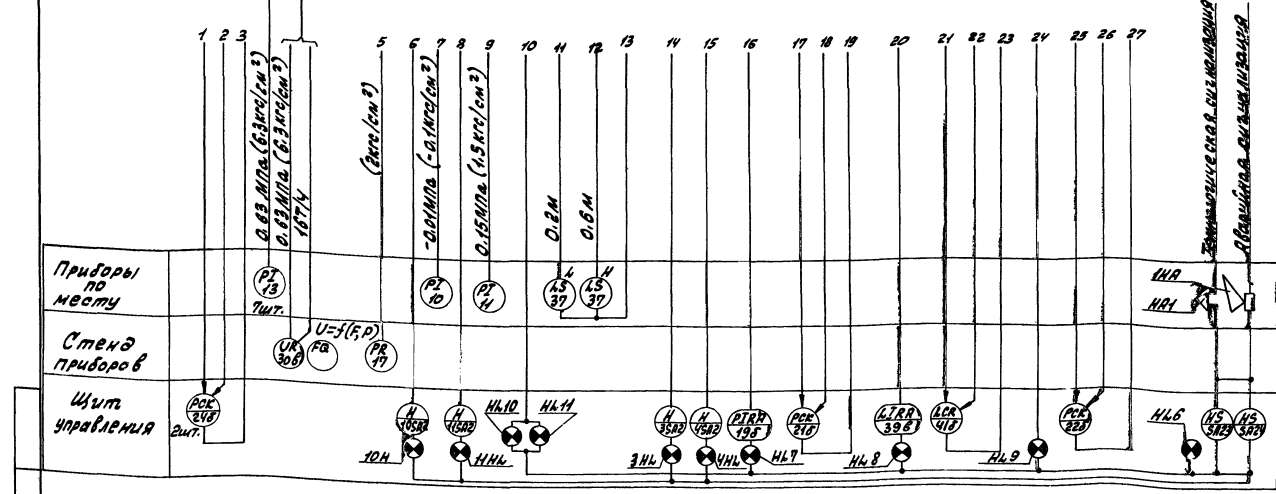 1 2 3 5 6 7 8 9 10 11 12 13 14 15 16 17 18 19 20 21 22 23 24 25 26 27
0.63 МПа (6.3 кгс/см²)
0.63 МПа (6.3 кгс/см²)
16т/ч
(2кгс/см²)
-0.01 МПа (-0.1 кгс/см²)
0.15 МПа (1.5 кгс/см²)
0.2 м
0.6 м
Технологическая сигнализация
Аварийная сигнализация
Приборы
по
месту
PI
13
7шт.
PI
10
PI
11
L
LS
37
H
LS
37
1НА
НА1
Стенд
приборов
UR
30в
U=f(F,P)
FQ
PR
17
Щит
управления
РСК
24б
2шт.
H
10SA2
10H
H
11SA2
HHL
HL10
HL11
H
3SA2
3HL
H
4SA2
4HL
PIRA
19б
HL7
РСК
21б
LIRA
39б
HL8
LCR
41б
HL9
РСК
22б
HL6
HS
SA23
HS
SA24